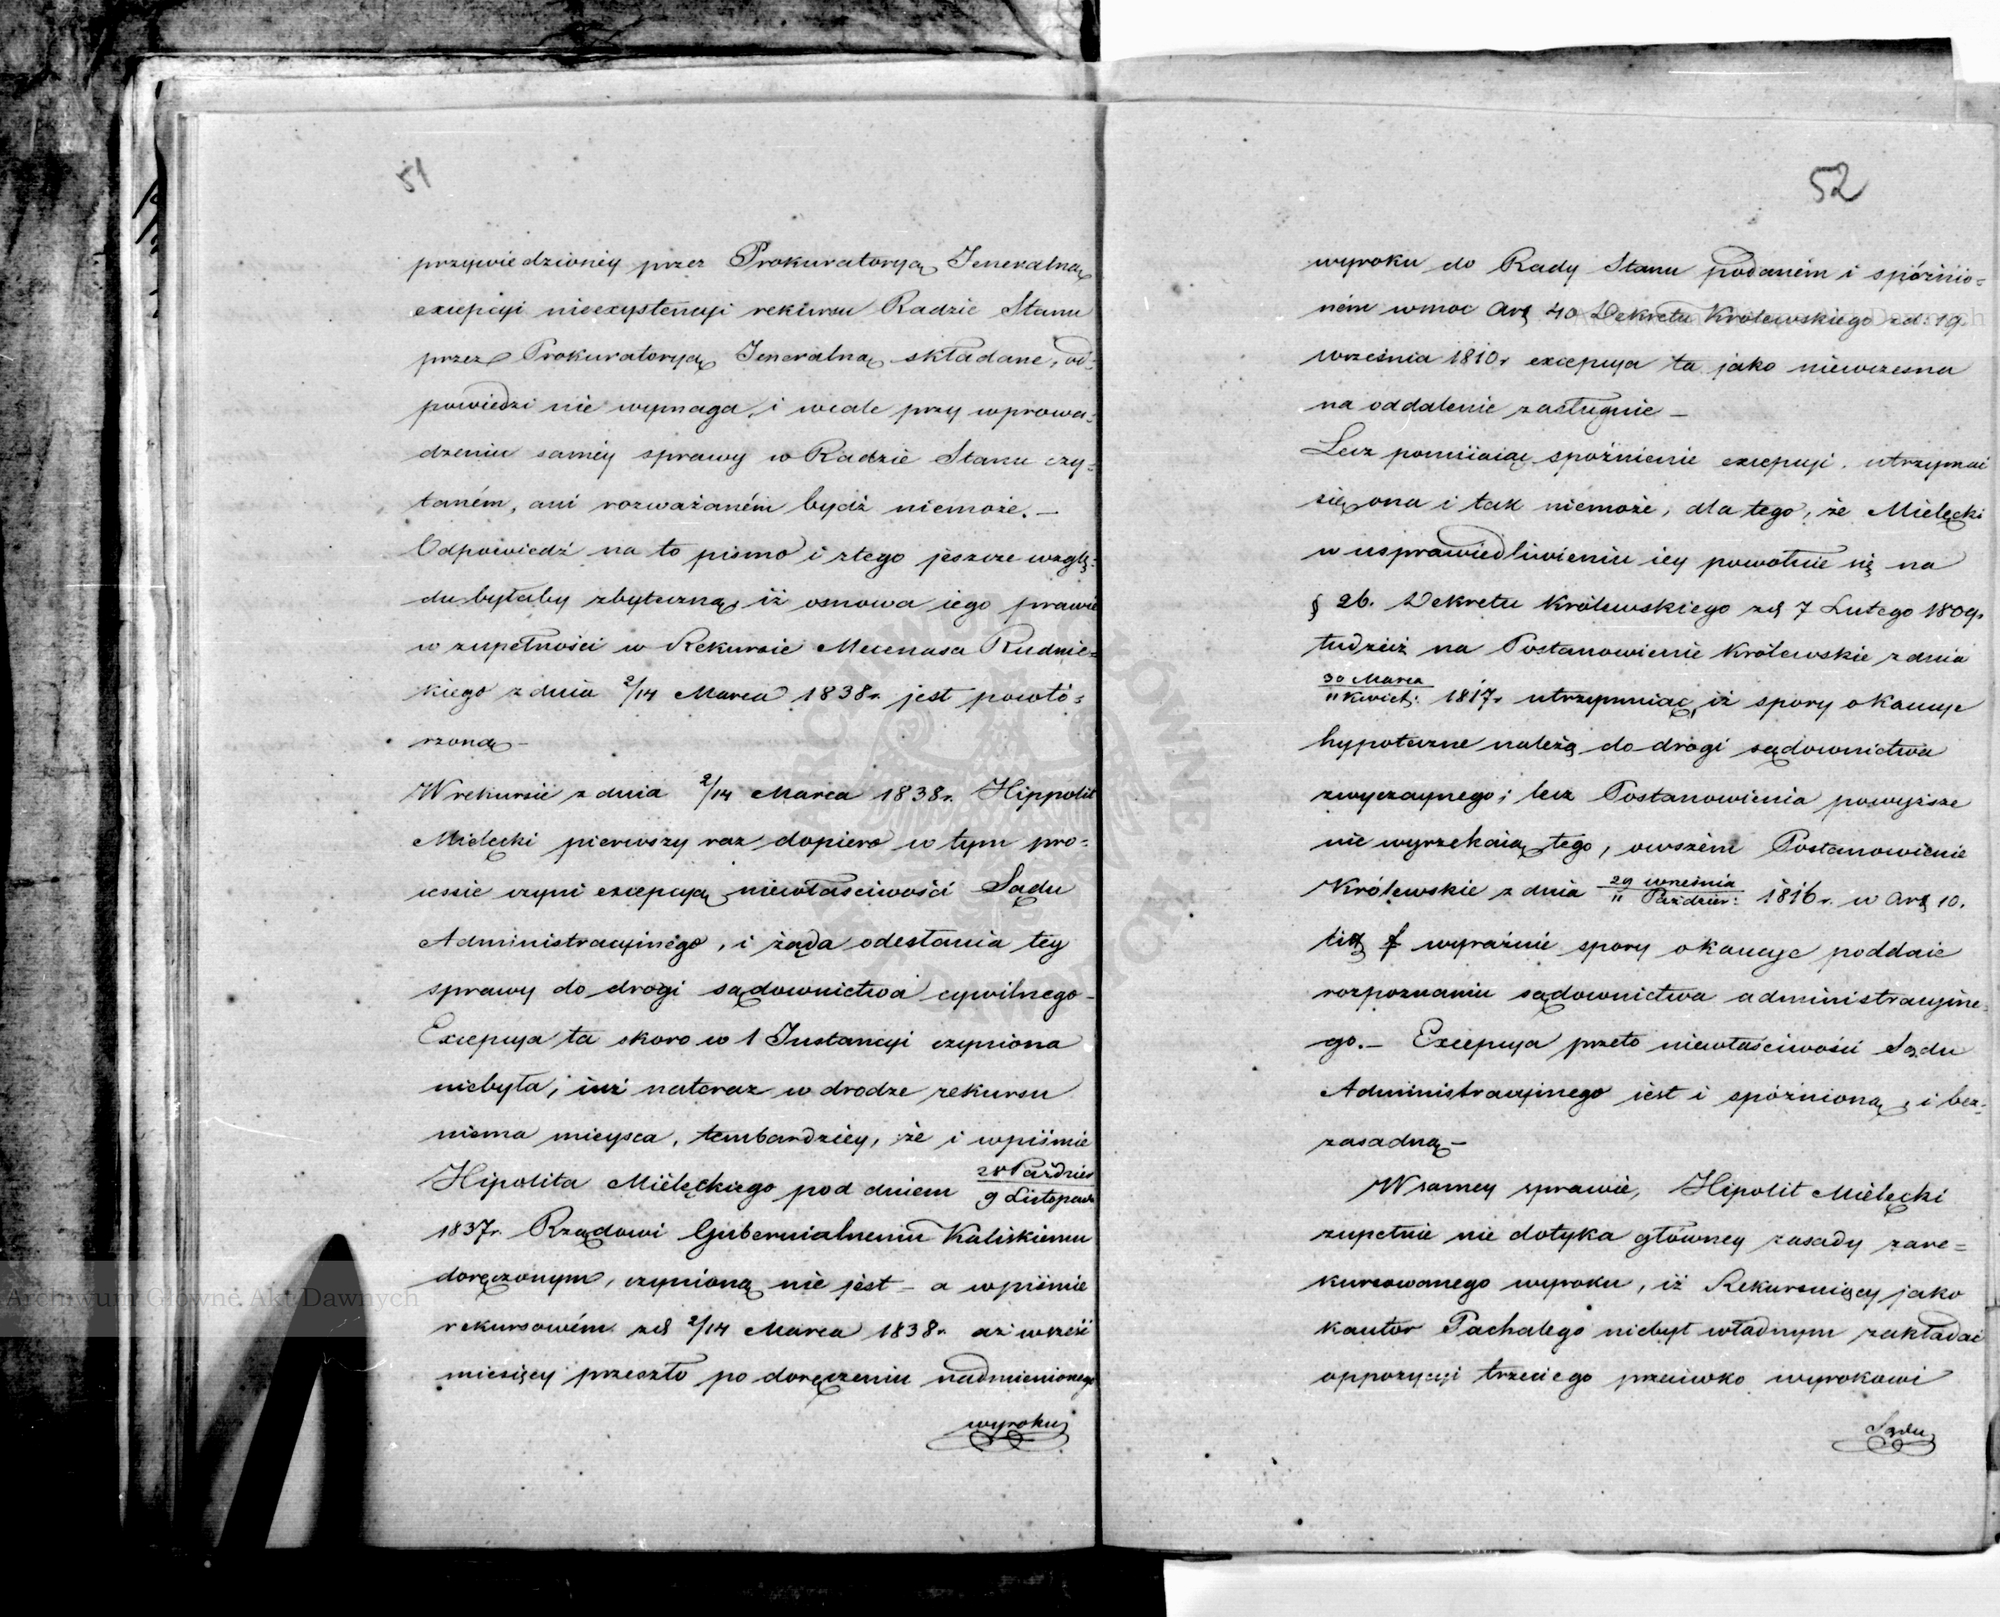 51
przywiedzioney przez Prokuratoryą Jeneralną
excepcyi nieexystencyi rekursu Radzie Stanu
przez Prokuratoryą Jeneralną składane, od-
powiedzi nie wymaga, i wcale przy wprowa-
dzeniu saméy sprawy w Radzie Stanu czy-
taném, ani rozważaném bydź niemoże. —
Odpowiedź na to pismo i ztego jeszcze wzglę-
du byłaby zbyteczną, iż osnowa iego prawie
w zupełności w Rekursie Mecenasa Rudnic-
kiego z dnia 2/14 Marca 1838r. jest powtó-
rzoną —
W rekursie z dnia 2/14 Marca 1838r. Hippolit
Mielęcki pierwszy raz dopiero w tym pro-
cessie czyni excepcyą niewłaściwości Sądu
Administracyinégo, i żąda odesłania tey
sprawy do drogi sądownictwa cywilnego —
Excepcya ta skoro w 1 Instancyi czyniona
niebyła, iuż nateraz w drodze rekursu
niema mieysca, tembardziéy, że i wpiśmie
Hipolita Mielęckiego pod dniem 28 Paździer / 9 Listopada
1837r. Rządowi Gubernialnemu Kaliskiemu
doręczonym, czynioną nie jest — a wpiśmie
rekursowém zd 2/14 Marca 1838r. aż wsześć
miesięcy przeszło po doręczeniu nadmienionego
wyroku
52
wyroku do Rady Stanu podaném i spóźnio-
ném wmoc Art 40 Dekretu Królewskiego zd. 19
września 1810r excepcya ta jako niewczesna
na oddalenie zasługuie —
Lecz pomiiaiąc spóźnienie excepcyi, utrzymać
się ona i tak niemoże, dla tego, że Mielęcki
w usprawiedliwieniu iey powołuie się na
§ 26. Dekretu Królewskiego zd 7 Lutego 1809r.
tudzież na Postanowienie Królewskie z dnia
30 Marca / 11 Kwiet: 1817r utrzymuiąc, iż spory o kaucye
hypoteczne należą do drogi sądownictwa
zwyczaynego; lecz Postanowienia powyższe
nie wyrzekaią tego, owszém Postanowienie
Królewskie z dnia 29 września / 11 Paździer: 1816r. w Art 10.
litt f wyraźnie spory o kaucye poddaie
rozpoznaniu sądownictwa administracyine-
go. — Excepcya przeto niewłaściwości Sądu
Administracyinego iest i spóźnioną, i bez-
zasadną —
W samey sprawie, Hipolit Mielęcki
zupełnie nie dotyka główney zasady zare-
kursowanego wyroku, iż Rekursuiący jako
kautor Pachalego niebył władnym zakładać
oppozycyi trzeciego przeciwko wyrokowi
Sądu
Archiwum Główne Akt Dawnych